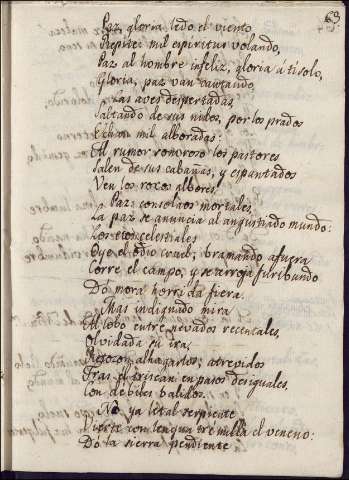 63.
Paz, gloria ledo el viento
Repite: mil espiritus volando,
Paz al hombre infeliz, gloria á ti solo,
Gloria, paz van cantando.
Las aves despertadas,
Saltando de sus nidos, por los prados
Echan mil alboradas:
Al rumor sonoroso los pastores
Salen de sus cabañas, y espantados
Ven los roxos albores.
Paz: consolaos mortales,
La paz se anuncia al angustiado mundo:
Los ecos celestiales
Oye el odio cruel; bramando afuera
Corre el campo, y se arroja furibundo
Dó mora horrida fiera.
Mas indignado mira
Al lobo entre nevados recentales,
Olvidada su ira;
Y atrevidos
Tras él triscan en pasos desiguales,
Con debiles balidos.
No ya letal serpiente
Vierte con lengua tremula el veneno:
Dó la sierra pendiente